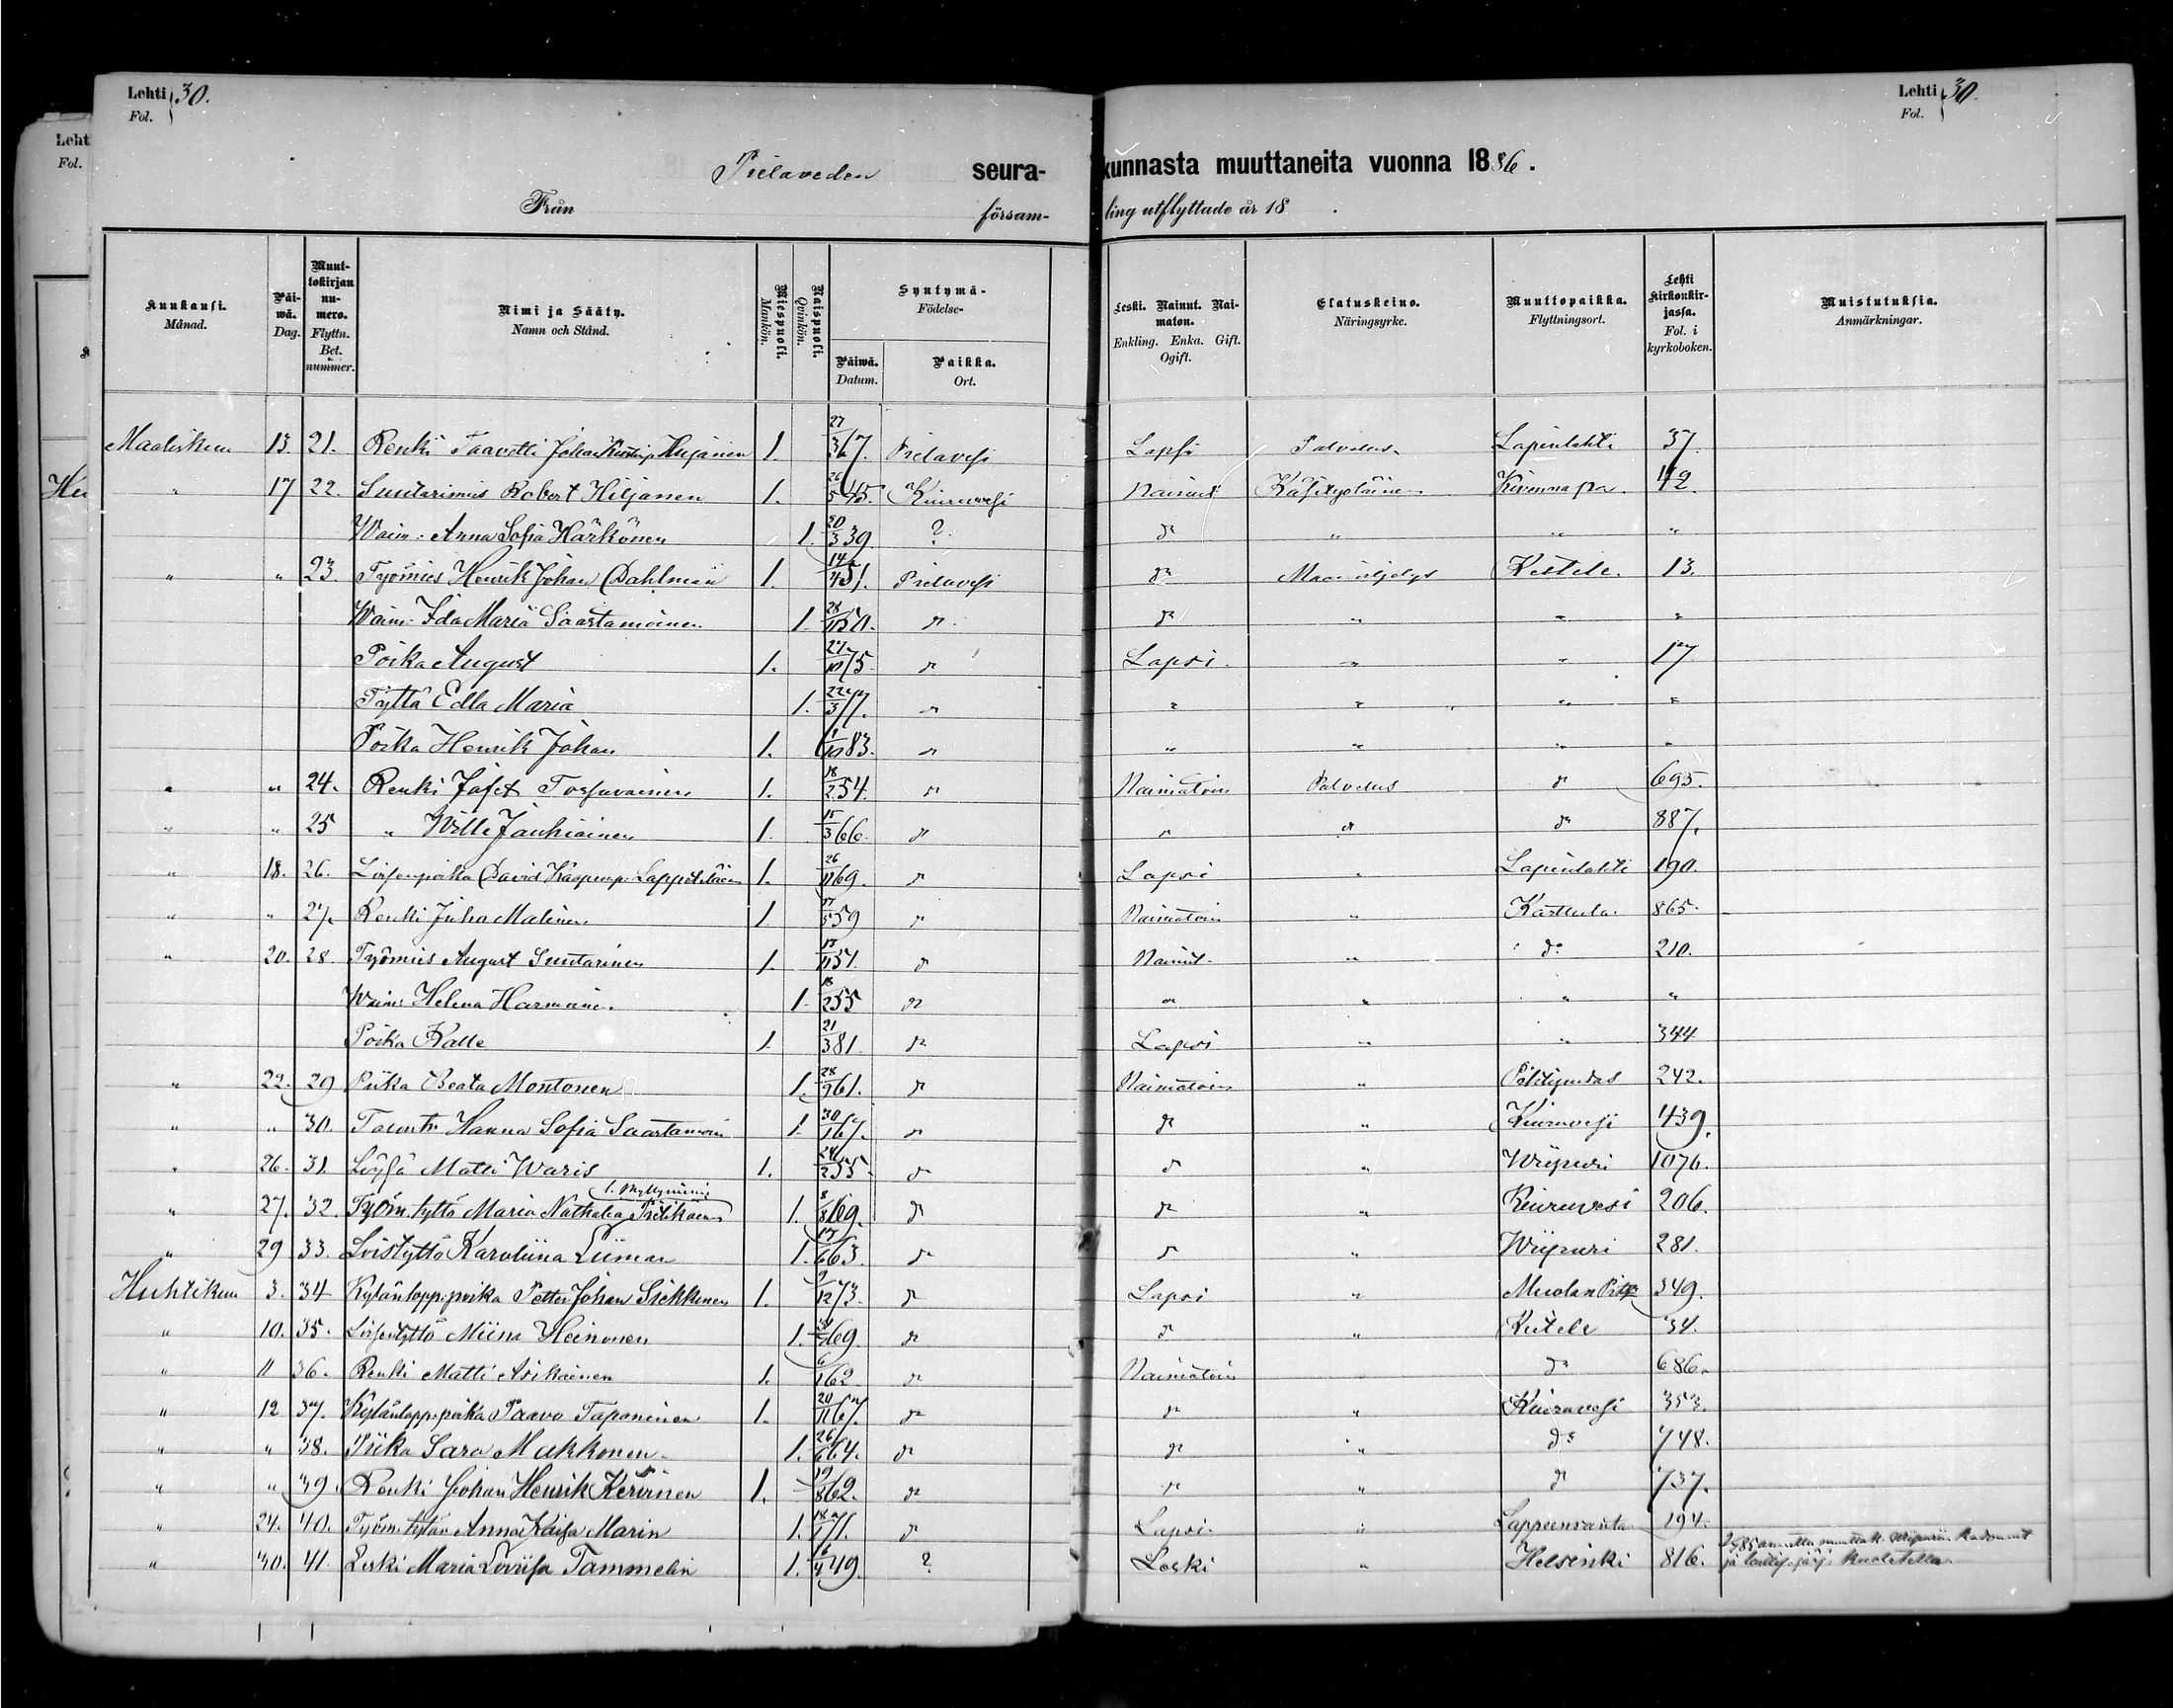 Lehti 30.
Fol.
Lehti 30.
Fol.
Leht
Fol.
Pielaveden seura- kunnasta muuttaneita vuonna 1886.
Från försam- ling utflyttade år 18 .
Kuukausi. Månad. Päi-wä. Dag. Muut-tokirjan nu-mero. Flyttn. Bet. nummer. Nimi ja Sääty. Namn och Stånd. Miespuoli. Mankön. Naispuoli. Qvinkön. Syntymä- Födelse- Päiwä. Datum. Paikka. Ort. Leski. Nainut. Nai-maton. Enkling. Enka. Gift. Ogift. Elatuskeino. Näringsyrke. Muuttopaikka. Flyttningsort. Lehti Kirkonkir-jassa. Fol. i kyrkoboken. Muistutuksia. Anmärkningar.
Maaliskuu 13. 21. Renki Taavetti Johan 1. 27/3 67. Pielavesi Lapsi Palvelus Lapinlahti 37.
" 17 22. Robert Hiljanen 1. 26/5 45. Kiuruvesi Nainut Käsityöläinen Kivennapa. 42.
Waim. Anna Sofia Härkönen 1. 20/3 39. ? do " " "
" " 23. Työmies Henrik Johan Dahlman 1. 14/4 51. Pielavesi do Maanviljelys Keitele. 13.
Waim. Ida Maria Saastamoinen 1. 28/11 50. do do " " "
Poika August 1. 27/10 75. do Lapsi " " 17
Tyttö Edla Maria 1. 22/3 77. do " " " "
Poika Henrik Johan 1. 1/10 83. do " " " "
" " 24. Renki Jafet Tossavainen 1. 18/2 54. do Naimatoin Palvelus do 695.
" " 25 " Wille Jauhiainen 1. 15/3 66. do " do do 887.
" 18. 26. Loisenpoika David Lappeteläin 1. 26/11 69. do Lapsi " Lapinlahti 190.
" " 27. Renki Juho Malinen 1. 17/5 59 do Naimatoin " Karttula. 865.
" 20. 28. Työmies August Suutarinen 1. 17/11 51. do Nainut " do 210.
Waim. Helena 1. 18/2 55 do " " " "
Poika Kalle 1. 21/3 81. do Lapsi " " 344
" 22. 29 Piika Beata Montonen 1. 28/9 61. do Naimatoin " 242.
" " 30. Hanna Sofia Saastamoin 1. 30/1 67. do do " Kiuruvesi 439.
" 26. 31. Matti Waris 1. 24/2 55. do do " Wiipuri 1076.
" 27. 32. Työm. tyttö Maria Nathalia Pietikäinen 1. 8/8 69. do do " Kiuruvesi 206.
" 29 33. Loistyttö Karoliina Liimar 1. 17/6 63. do do " Wiipuri 281.
Huhtikuu 3. 34 Kylänlopp. poika Petter Johan Siekkinen 1. 9/12 73. do Lapsi " Muolan Pitäj 349.
" 10. 35. Loisentyttö Miina Heinonen 1. 69. do do " Keitele 34.
" 11 36. Renki Matti Asikainen 1. 6/1 62 do Naimatoin do 686.
" 12 37. Kylänlopp. poika Paavo Taponinen 1. 20/11 67. do do " Kiuruvesi 353.
" " 38. Piika Sara Mukkonen 1. 26/6 64. do do " do 748.
" " 39. Renki Johan Henrik Kervinen 1. 19/8 62. do do " do 737.
" 24. 40. Anna Kaisa Marin 1. 18/1 71. do Lapsi " Lappeenranta 194.
" 30. 41. Leski Maria Loviisa Tammelin 1. 6/4 49. ? Leski " Helsinki 816.